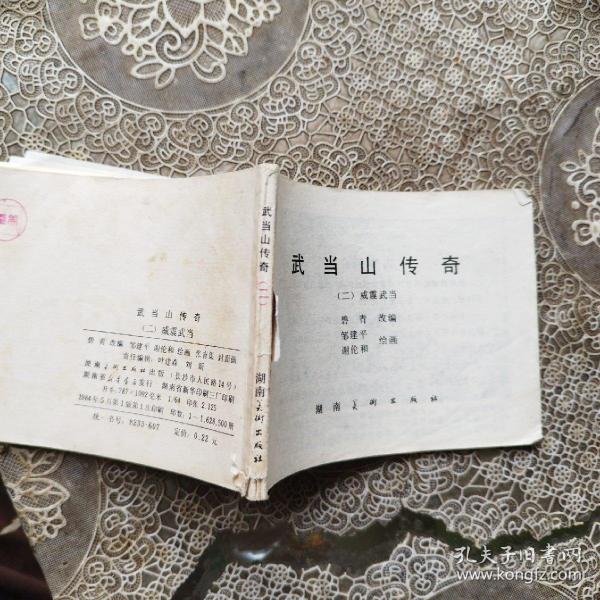 武当山传奇
(二)威震武当
碧青 改编 邹建平 谢伦和 绘画
责任编辑:叶建森 刘昕
湖南美术出版社出版(长沙市人民路14号)
湖南省新华书店发行 湖南省新华印刷三厂印刷
开本:787×1092毫米 1/64 印张 2.125
1984年5月第1版第1次印刷 印数:1—1,628,500册
统一书号:8233·607 定价:0.22元
武当山传奇(二)
湖南美术出版社
武当山传奇
(二)威震武当
碧青 改编
邹建平
谢伦和
绘画
湖南美术出版社
孔夫子旧书网
www.kongfz.com